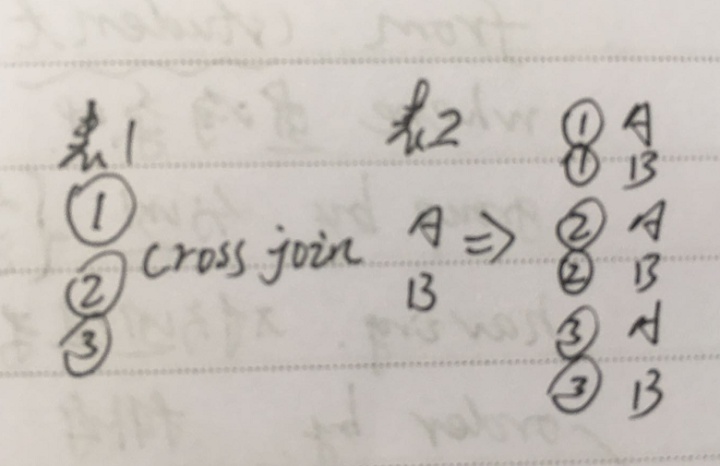 表1 表2 ① A
① B
① cross join A => ② A
② B ② B
③ ③ A
③ B